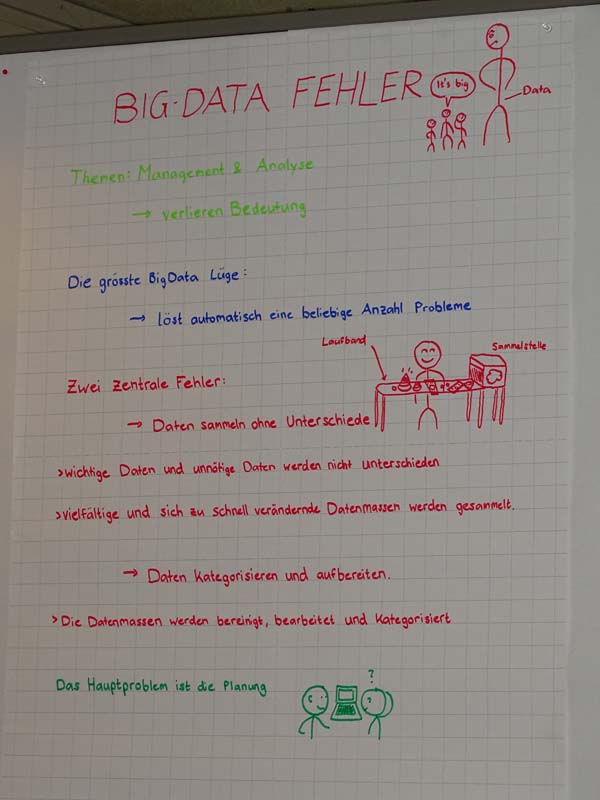 BIG-DATA FEHLER
It's big
Data
Themen: Management & Analyse
→ verlieren Bedeutung
Die grösste BigData Lüge:
→ löst automatisch eine beliebige Anzahl Probleme
Laufband
Sammelstelle
Zwei zentrale Fehler:
→ Daten sammeln ohne Unterschiede
>wichtige Daten und unnötige Daten werden nicht unterschieden
>vielfältige und sich zu schnell verändernde Datenmassen werden gesammelt.
→ Daten Kategorisieren und aufbereiten.
>Die Datenmassen werden bereinigt, bearbeitet und Kategorisiert
Das Hauptproblem ist die Planung
?
?